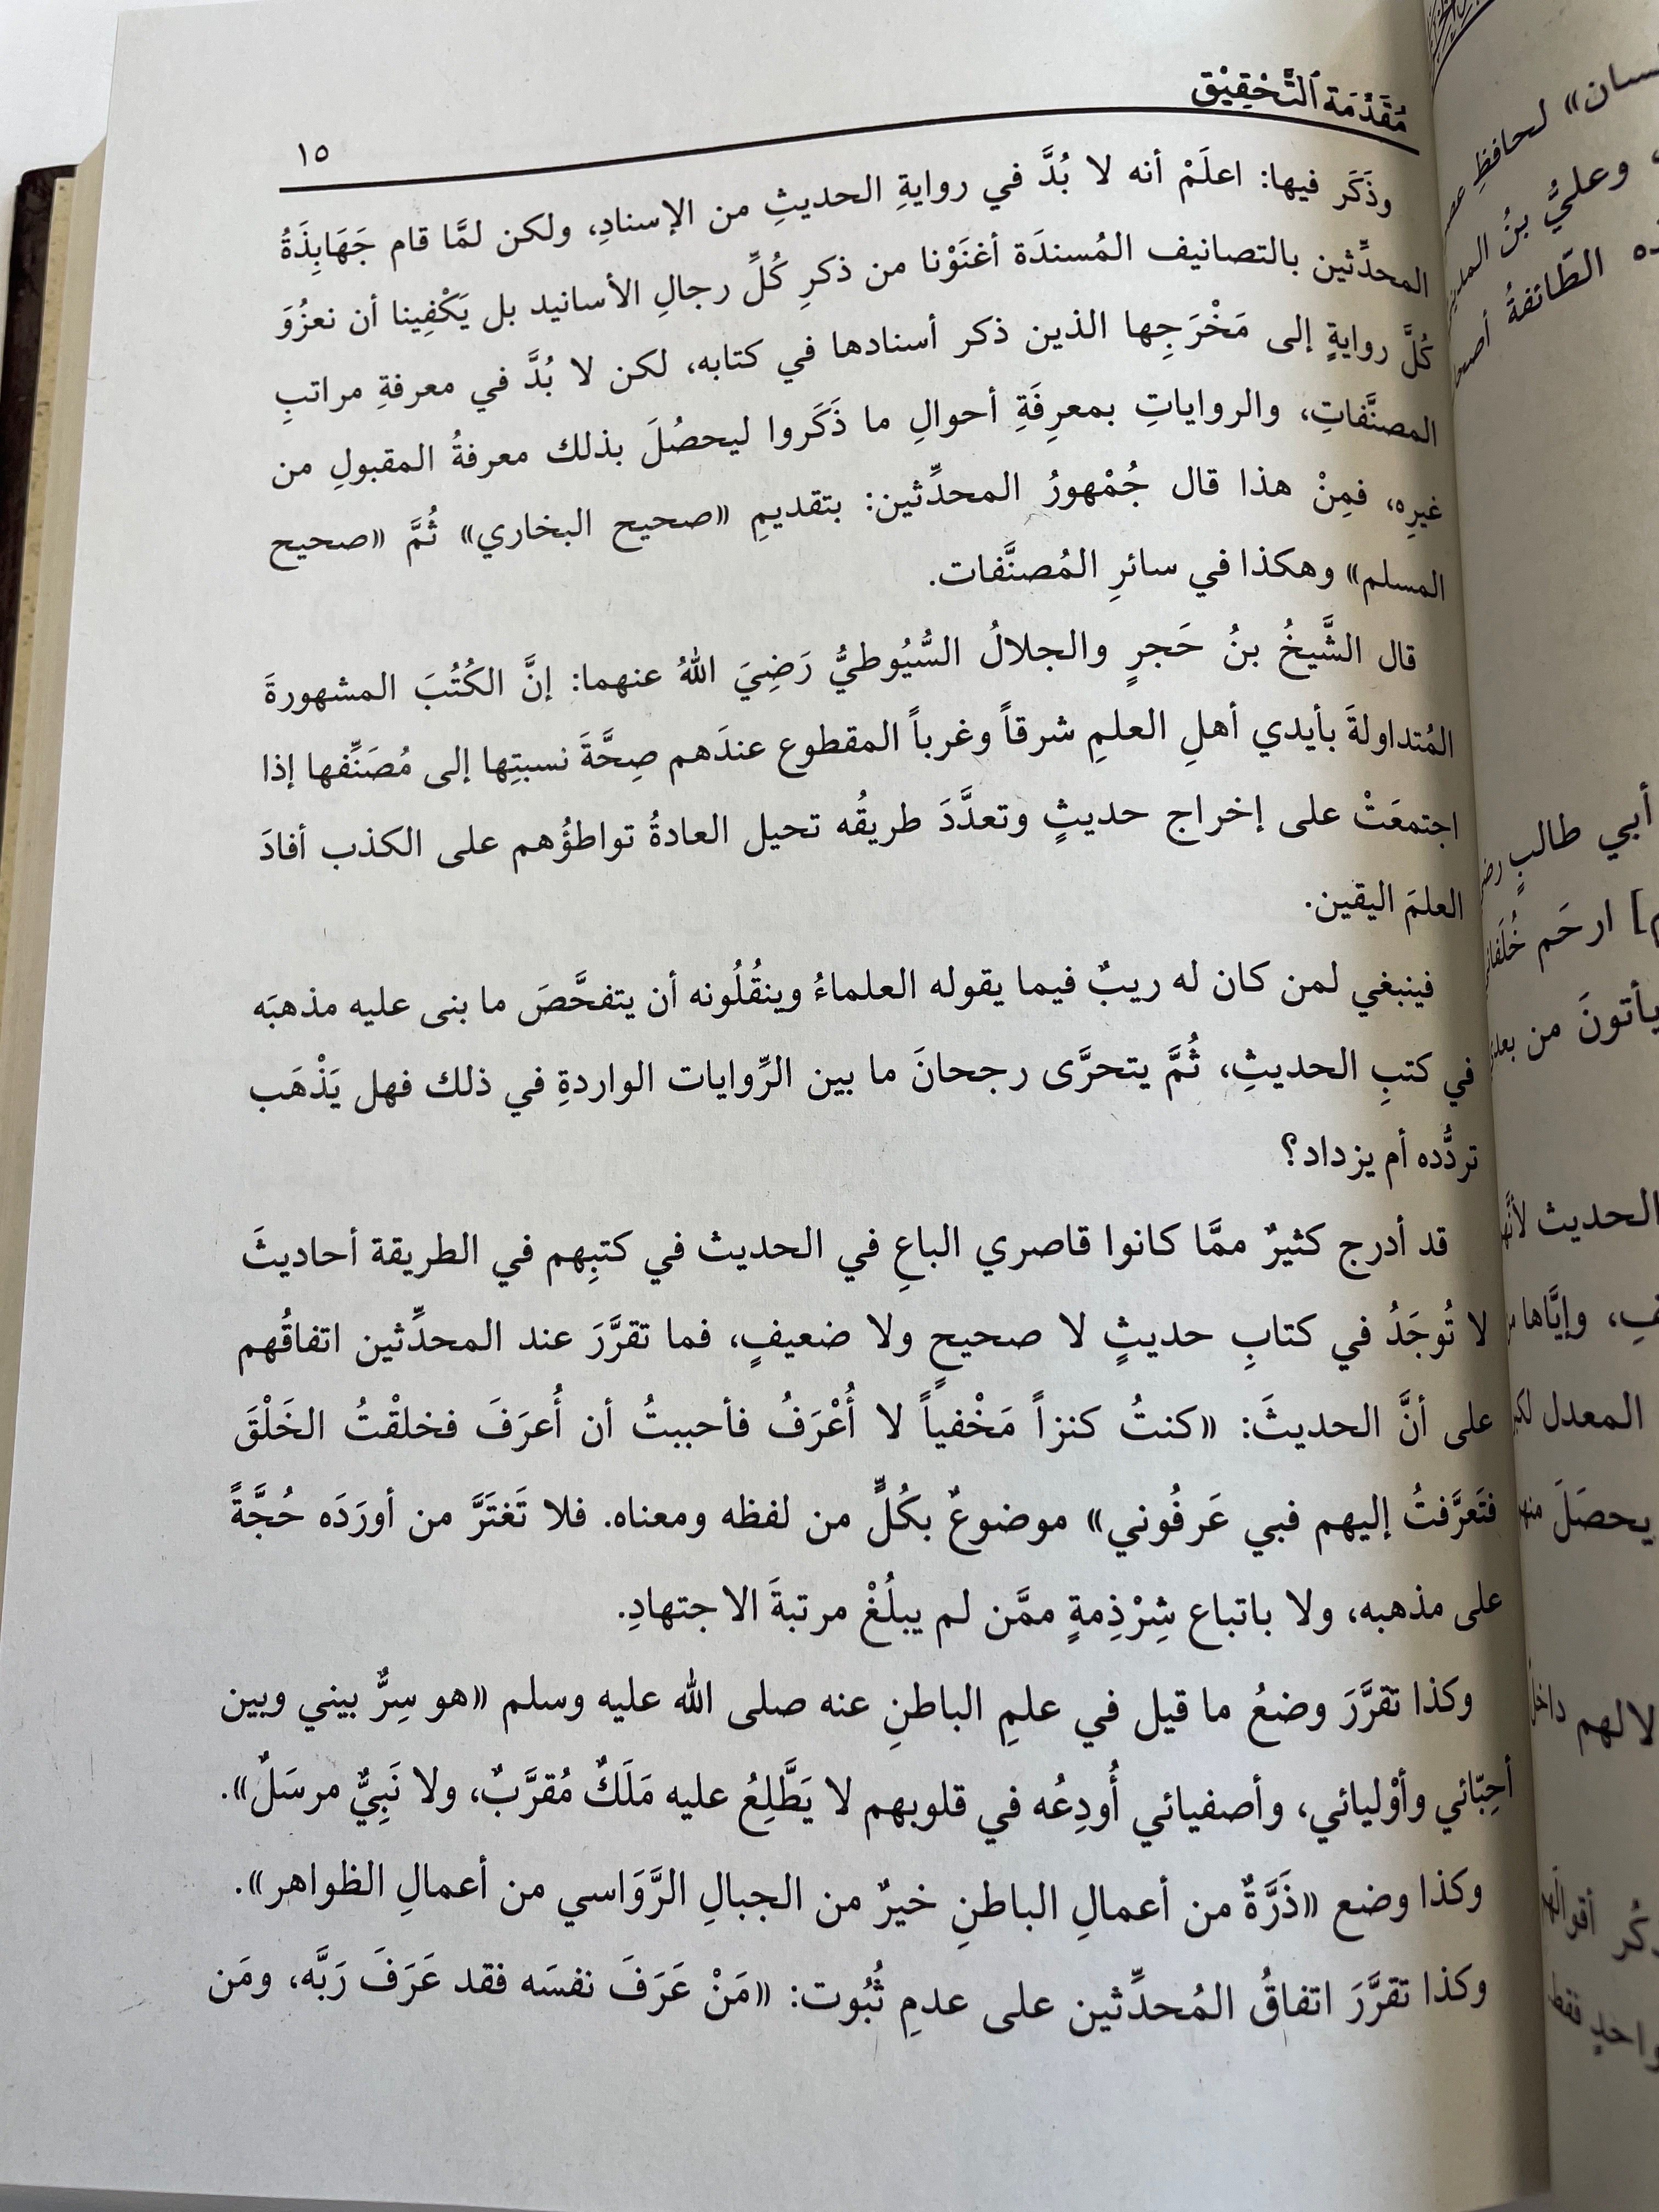 مُقَدِّمَة ٱلتَّحْقِيْق
١٥
وذَكَر فيها: اعلَمْ أنه لا بُدَّ في روايةِ الحديثِ من الإسنادِ، ولكن لمَّا قام جَهَابِذَةُ
المحدِّثين بالتصانيف المُسندَة أغنَوْنا من ذكرِ كُلِّ رجالِ الأسانيد بل يَكْفِينا أن نعزُوَ
كُلَّ روايةٍ إلى مَخْرَجِها الذين ذكر أسنادها في كتابه، لكن لا بُدَّ في معرفةِ مراتبِ
المصنَّفاتِ، والرواياتِ بمعرِفَةِ أحوالِ ما ذَكَروا ليحصُلَ بذلك معرفةُ المقبولِ من
غيرِه، فمِنْ هذا قال جُمْهورُ المحدِّثين: بتقديمِ «صحيح البخاري» ثُمَّ «صحيح
المسلم» وهكذا في سائرِ المُصنَّفات.
قال الشَّيخُ بنُ حَجرٍ والجلالُ السُّيُوطيُّ رَضِيَ اللهُ عنهما: إنَّ الكُتُبَ المشهورةَ
المُتداولةَ بأيدي أهلِ العلمِ شرقاً وغرباً المقطوع عندَهم صِحَّةَ نسبتِها إلى مُصَنِّفها إذا
اجتمعَتْ على إخراج حديثٍ وتعدَّدَ طريقُه تحيل العادةُ تواطؤُهم على الكذب أفادَ
العلمَ اليقين.
فينبغي لمن كان له ريبٌ فيما يقوله العلماءُ وينقُلُونه أن يتفحَّصَ ما بنى عليه مذهبَه
في كتبِ الحديثِ، ثُمَّ يتحرَّى رجحانَ ما بين الرِّوايات الواردةِ في ذلك فهل يَذْهَب
تردُّده أم يزداد؟
قد أدرج كثيرٌ ممَّا كانوا قاصري الباعِ في الحديث في كتبِهم في الطريقة أحاديثَ
لا تُوجَدُ في كتابِ حديثٍ لا صحيحٍ ولا ضعيفٍ، فما تقرَّرَ عند المحدِّثين اتفاقُهم
على أنَّ الحديثَ: «كنتُ كنزاً مَخْفياً لا أُعْرَفُ فأحببتُ أن أُعرَفَ فخلقْتُ الخَلْقَ
فتَعرَّفتُ إليهم فبي عَرفُوني» موضوعٌ بكُلٍّ من لفظه ومعناه. فلا تَغتَرَّ من أورَدَه حُجَّةً
على مذهبه، ولا باتباع شِرْذِمةٍ ممَّن لم يبلُغْ مرتبةَ الاجتهادِ.
وكذا تقرَّرَ وضعُ ما قيل في علمِ الباطنِ عنه صلى الله عليه وسلم «هو سِرٌّ بيني وبين
أحِبّائي وأوْليائي، وأصفيائي أُودِعُه في قلوبهم لا يَطَّلِعُ عليه مَلَكٌ مُقرَّبٌ، ولا نَبِيٌّ مرسَلٌ».
وكذا وضع «ذَرَّةٌ من أعمالِ الباطنِ خيرٌ من الجبالِ الرَّوَاسي من أعمالِ الظواهر».
وكذا تقرَّرَ اتفاقُ المُحدِّثين على عدمِ ثُبُوت: «مَنْ عَرَفَ نفسَه فقد عَرَفَ رَبَّه، ومَن
لحافظِ
وعليُّ بنُ
الطّائفةُ
أبي طالبٍ
ارحَم
يأتونَ من
الحديث
وإيَّاها
المعدل
يحصَلَ
أقوالهم
فقط